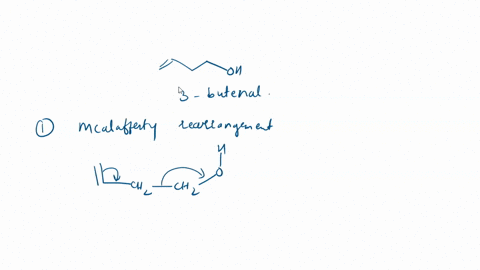 OH
3-butenal.
① Mcalafferty rearrangement
H
O
CH2 - CH2